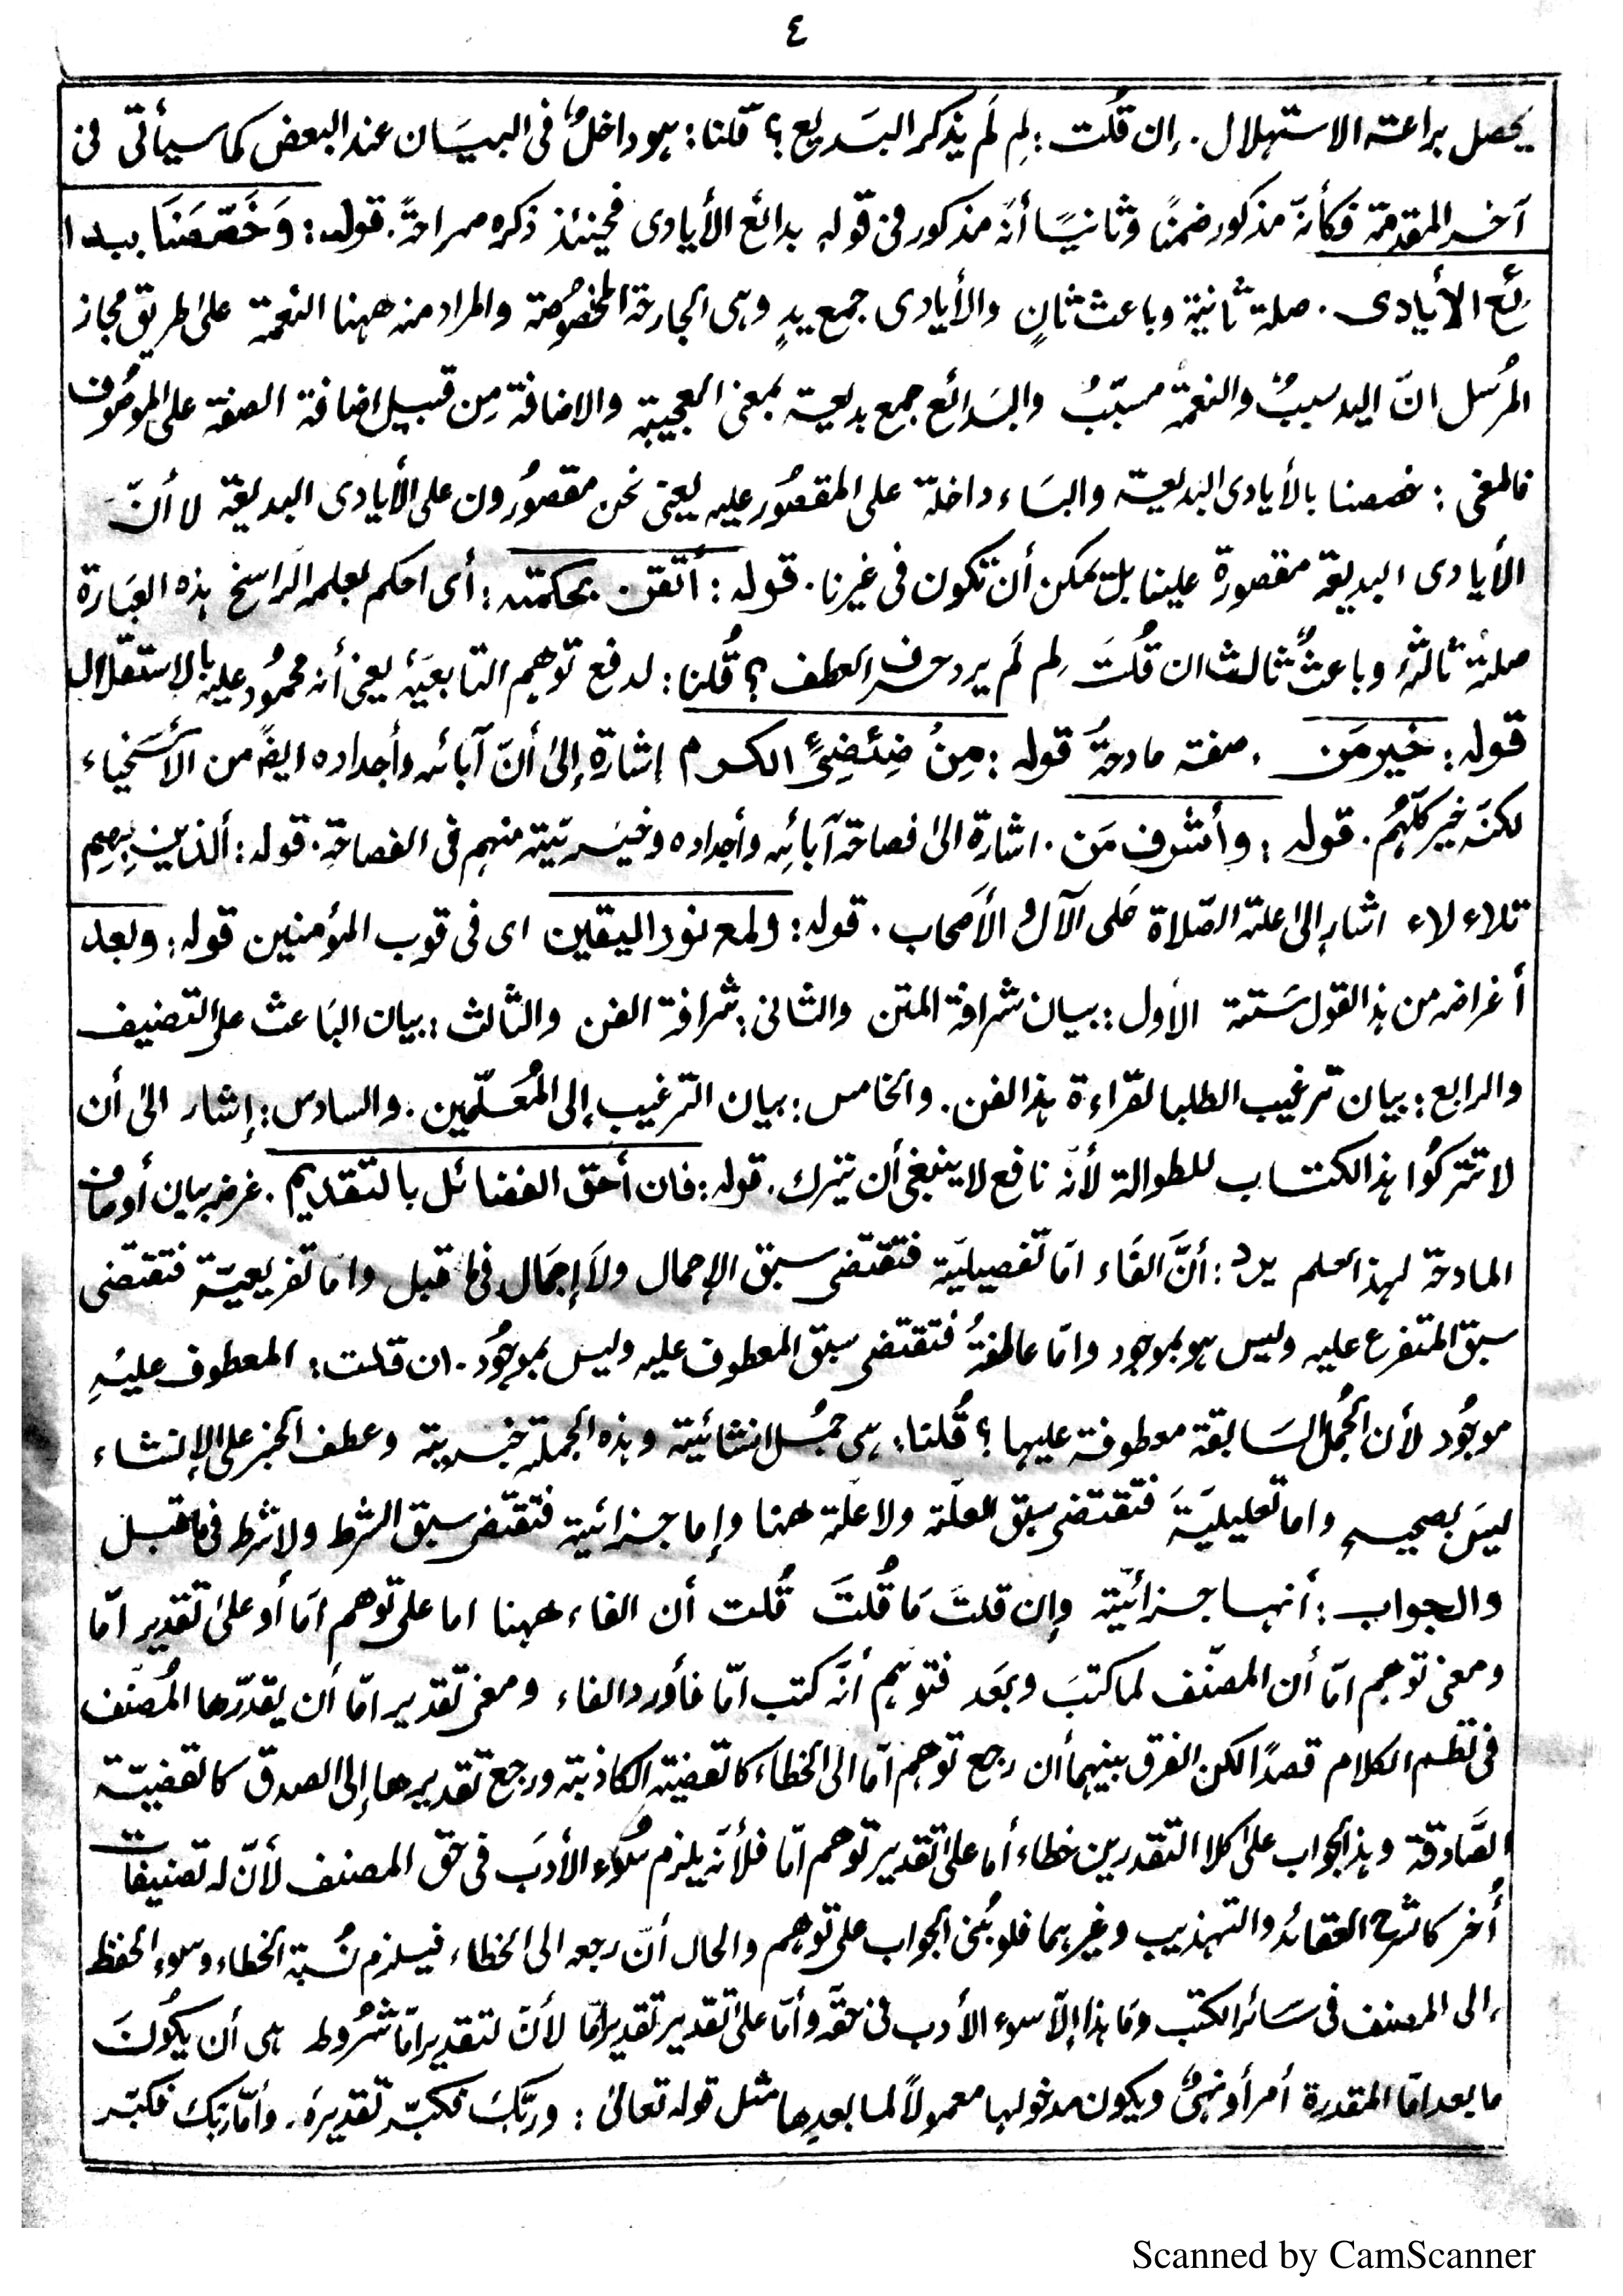 ٤
يحصل براعته الاستهلال. إن قُلت: لِم لَم يذكر البَديع؟ قلنا: هو داخلٌ فى البيَان عند البعض كما سيأتى فى
آخر المقدمة فكأنّه مذكور ضمنًا وثانيًا أنّه مذكور فى قوله بدائع الأيادى فحينئذ ذكره صراحةً. قوله: وَخَصَّصَنَا ببدا
ئع الأيادى. صلة ثانية وباعث ثانٍ والأيادى جمع يدٍ وهى الجارحة المخصُوصة والمراد منه ههنا النعمة على طريق مجاز
المُرسَل انّ اليد سببٌ والنعمة مسبّبٌ والبَدائع جمع بديعة بمعنى العجيبة والاضافة مِن قبيل اضافة الصفة على الموصُوف
فالمعنى: خصصنا بالأيادى البديعة والبَاء داخلة على المقصُور عليه يعنى نحن مقصُورون على الأيادى البديعة لا أنّ
الأيادى البديعة مقصورة علينا بل يمكن أن تكون فى غيرنا. قوله: أتقن بحكمته: أى احكم بعلمه الراسخ هذه العبَارة
صلة ثالثة وباعثٌ ثالث ان قُلتَ لِم لَم يرد حرف العطف؟ قُلنا: لدفع توهم التابعيَة يعنى أنه محمُود عليه بالاستقلال
قوله: خير مَن. صفة مادحةٌ قوله: مِنْ ضِئضِئِ الكرم إشارة إلىٰ أنّ آبائه وأجداده ايضًا من الأسخياء
لكنّه خير كلّهُم. قوله: وأشرف مَن. اشارة الىٰ فصاحة آبائِه وأجداده وخيَريّته منهم فى الفصاحة. قوله: ألذين بِهِم
تلاء لاء اشار إلىٰ علة الصّلاة عَلى الآل والأصحاب. قوله: ولمع نور اليقين اى فى قوب المؤمنين قوله: وبعد
أغراضه من هذا القول سَتة الأول: بيان شرافة المتن والثانى: شرافة الفن والثالث: بيان البَاعث على التصنيف
والرابع: بيان ترغيب الطلبا لقراءة هذا الفن. والخامس: بيان الترغيب إلى المُعَلّمين. والسادس: إشار الىٰ أن
لا تتركُوا هذا الكتاب للطوالة لأنّه نافع لا ينبغى أن يترك. قوله: فان أحق الفضائل بالتقديم. غرضه بيان أوصاف
المادحة لهذا العلم يرد: أنّ الفَاء امّا تفصيليّة فتقتضى سبق الإجمال ولَا إجمَال فيما قبل وامّا تفريعيّة فتقتضى
سبق المتفرع عليه وليس هو بموجود وامّا عاطفةُ فتقتضى سبق المعطوف عليه وليس بموجُود. ان قلت: المعطوف عليهِ
موجُود لأن الجُمل السَابقة معطوفة عليها؟ قُلنا: هى جمُل انشائية وهذه الجملة خبرية وعطف الخبر على الإنشاء
ليسَ بصحيح واما تعليليَةَ فتقتضى سبق العلّة ولا علّة ههنا وإما جزائية فتقتضى سبق الشرط ولا شرط فى ما قبل
والجواب: أنها جزائيّة وإن قلتَ مَا قُلتَ قُلت أن الفاء ههنا اما على توهم امّا أو علىٰ تقدير امّا
ومعنى توهم امّا أن المصنّف لما كتبَ وبعَد فتوهم أنّه كتب امّا فأورد الفاء ومعنى تقدير امّا أن يقدّرها المُصَنّف
فى نظم الكلام قصدًا لكن الفرق بينهما أن رجع توهم امّا الى الخطاء كالقضية الكاذبة ورجع تقديرها إلى الصدق كالقضيّة
الصَّادقة وهذا الجواب علىٰ كلا التقدرين خطاء أما علىٰ تقدير توهم امّا فلأنّه يلزم سُوء الأدبَ فى حق المصنف لأنّ له تصنيفات
أُخر كالشرح العقائد والتهذيب وغيرهما فلو بُنى الجواب على توهم والحال أنّ رجعه الى الخطاء فيلزم نُسبة الخطاء وسوء الحفظ
إلى المصنف فى سَائر الكتب وَمَا هذا إلّا سوء الأدب فى حقّه وأمّا علىٰ تقدير تقدير امّا لأنّ لتقدير امّا شُروط هى أن يكُونَ
ما بعد امّا المقدرة أمر أو نهىٌ ويكون مدخولها معمولاً لما بعدها مثل قوله تعالىٰ: وربّكَ فكبّر تقديره. وأمّا ربّكَ فكبّر
Scanned by CamScanner